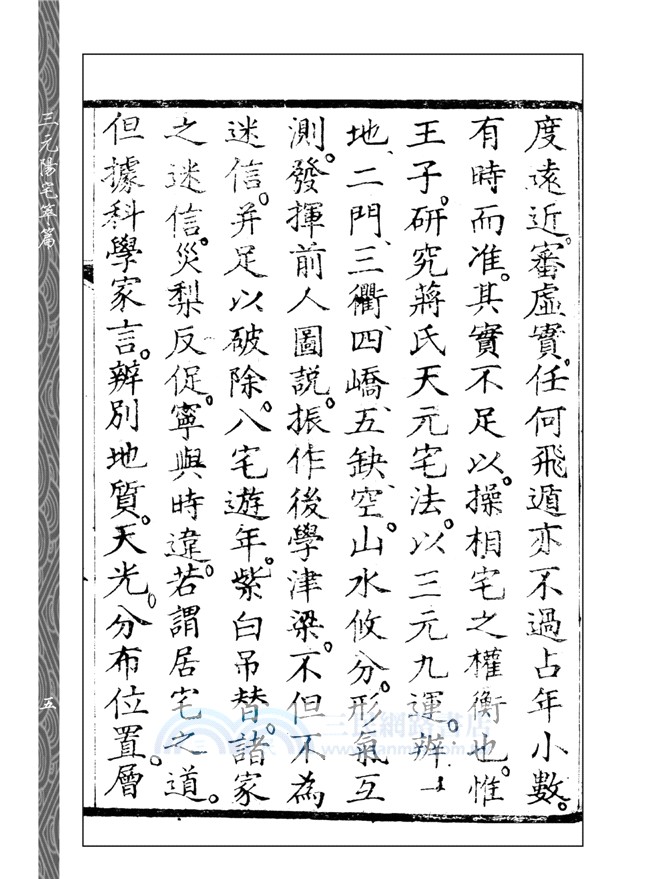 度遠近。審虛實。任何飛遁亦不過占年小數。
有時而准。其實不足以。操相宅之權衡也。惟
王子。研究蔣氏天元宅法。以三元九運。辨一
地、二門、三衢、四嶠、五缺空。山水攸分。形氣互
測。發揮前人圖說。振作後學津梁。不但不為
迷信。并足以破除。八宅遊年。紫白吊替。諸家
之迷信。災梨反促。寧與時違。若謂居宅之道。
但據科學家言。辨別地質。天光。分布位置。層
三元陽宅萃篇
五
三民網路書店
www.sanmin.com.tw